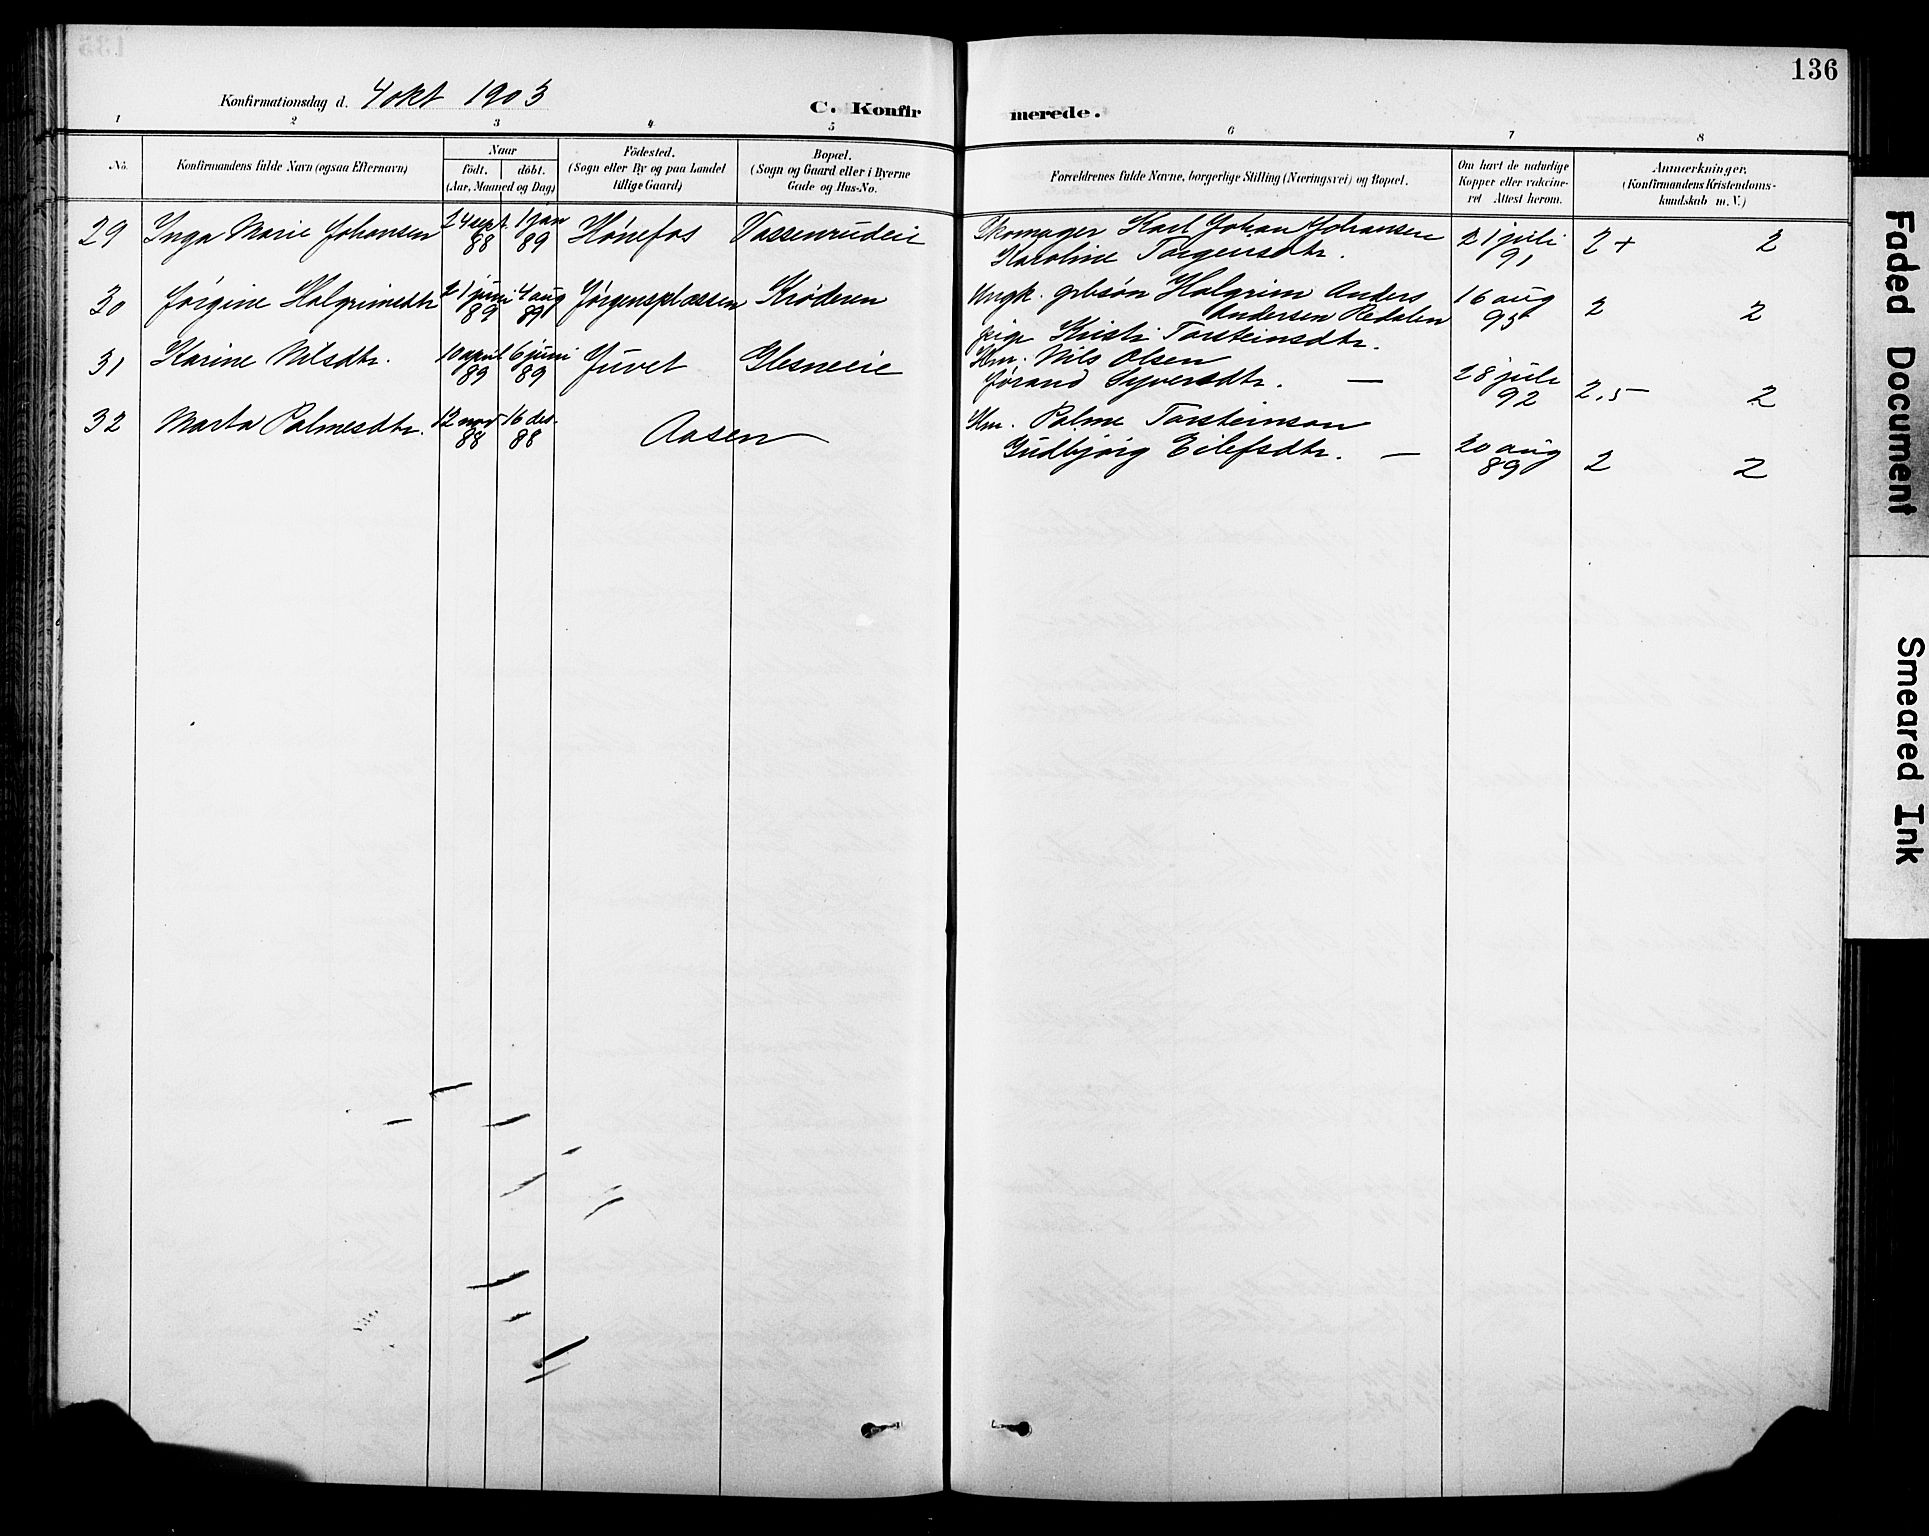 136
Konfirmationsdag d. 4 okt 1903
C. Konfirmerede.
1 2 3 4 5 6 7 8
No.
Konfirmandens fulde Navn (ogsaa Efternavn)
Naar
födt. döbt.
(Aar, Maaned og Dag)
Födested.
(Sogn eller By og paa Landet
tillige Gaard)
Bopæl.
(Sogn og Gaard eller i Byerne
Gade og Hus-No.
Forældrenes fulde Navne, borgerlige Stilling (Næringsvei) og Bopæl.
Om havt de naturlige
Kopper eller vakcine-
ret Attest herom.
Anmærkninger.
(Konfirmandens Kristendoms-
kundskab m. V.)
29 Inga Marie Johansen 24 sept. 88 1 jan 89 Hönefos Vassenrudeie Skomager Karl Johan Johansen 21 juli 91 2+ 2
Karoline Torgersdtr.
30 Jörgine Halgrimsdtr 21 juni 89 4 aug 89 Jörgensplassen Kröderen Ungk. grbsön Halgrim Anders 16 aug 95 2 2
Andersen Redalen
pige Kristi Torsteinsdtr.
31 Karine Nilsdtr. 10 april 89 6 juni 89 Juvet Glesneeie Hm. Nils Olsen
Jörand Syversdtr. — 28 juli 92 2,5 2
32 Marta Palmesdtr. 12 nov 88 16 des. 88 Aasen Hm. Palme Torsteinson
Gudbjörg Eilefsdtr. — 20 aug 89 2 2
Faded Document
Smeared Ink